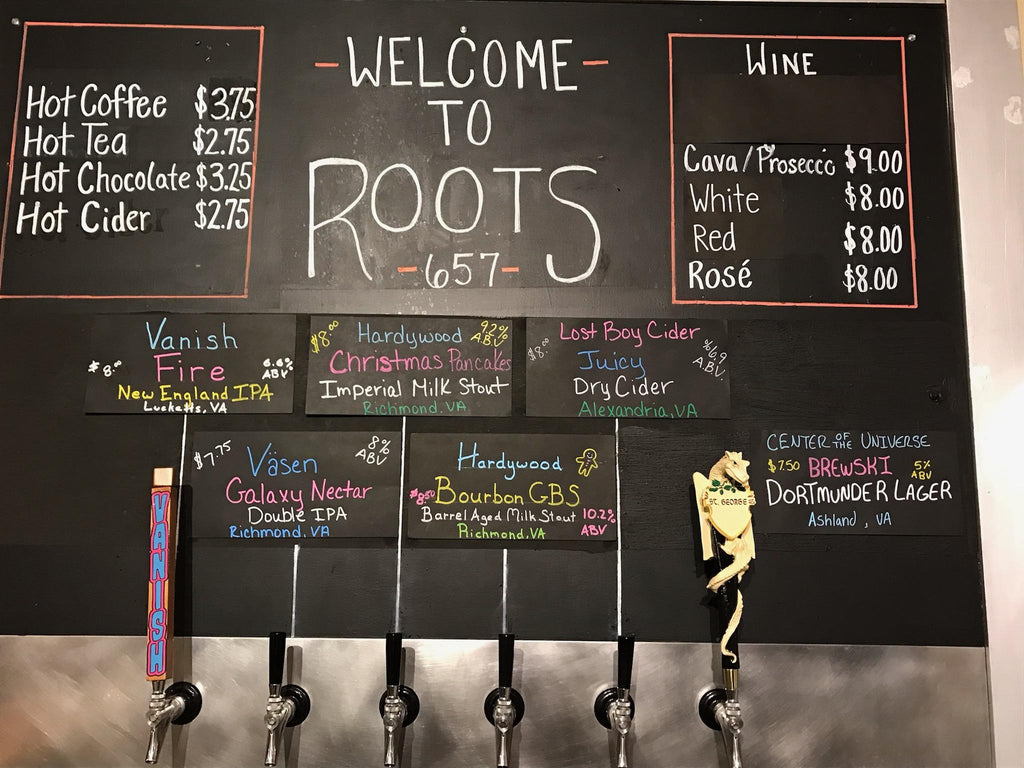 Hot Coffee $3.75
Hot Tea $2.75
Hot Chocolate $3.25
Hot Cider $2.75
-WELCOME-
TO
ROOTS
-657-
WINE
Cava/Prosecco $9.00
White $8.00
Red $8.00
Rosé $8.00
Vanish
$8.00 Fire 6.6% ABV
New England IPA
Lucketts, VA
$8.00 Hardywood 9.2% A.B.V.
Christmas Pancakes
Imperial Milk Stout
Richmond, VA
Lost Boy Cider
$8.00 Juicy %6.9 ABV.
Dry Cider
Alexandria, VA
$7.75 Väsen 8% ABV
Galaxy Nectar
Double IPA
Richmond, VA
Hardywood
$8.50 Bourbon GBS
Barrel Aged Milk Stout 10.2% ABV
Richmond, VA
CENTER OF THE UNIVERSE
$7.50 BREWSKI 5% ABV
DORTMUNDER LAGER
Ashland, VA
VANISH
ST. GEORGE